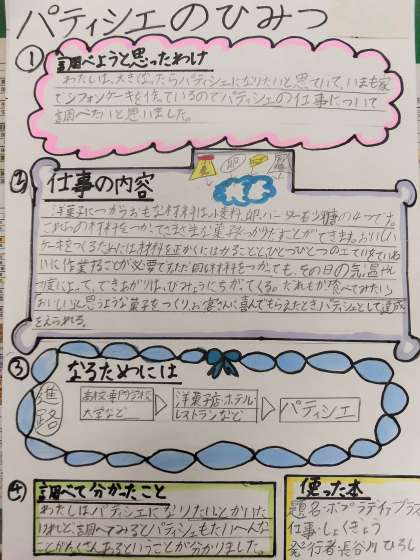 パティシエのひみつ
① 調べようと思ったわけ
わたしは、大きくなったらパティシエになりたいと思っていて、いまも家
でシフォンケーキを作っているのでパティシエの仕事について
調べたいと思いました。
② 仕事の内容
洋菓子につかうおもな材料は小麦粉、卵、バター、砂糖の4つです。
これらの材料をつかってさまざまな菓子をつくりだすことができます。おいしい
ケーキをつくるためには材料を正かくにはかることと、ひとつひとつの工ていをていね
いに作業することが必要です。また同じ材料をつかっても、その日の気温や
によって、できあがりは、びみょうにちがってくる。だれもが食べてみたい、
おいしいと思うような菓子をつくり、お客さんに喜んでもらえたときパティシエとして達成
をえられる。
③ なるためには
進路
高校専門学校
大学など
洋菓子店ホテル
レストランなど
パティシエ
④ 調べて分かったこと
わたしはパティシエになりたいとかいた
けれど、調べてみるとパティシエもたいへんな
ことがたくさんあるということが分かりました。
使った本
題名・ポプラディアプラス
仕事・しょくぎょう
発行者・長谷川ひろし